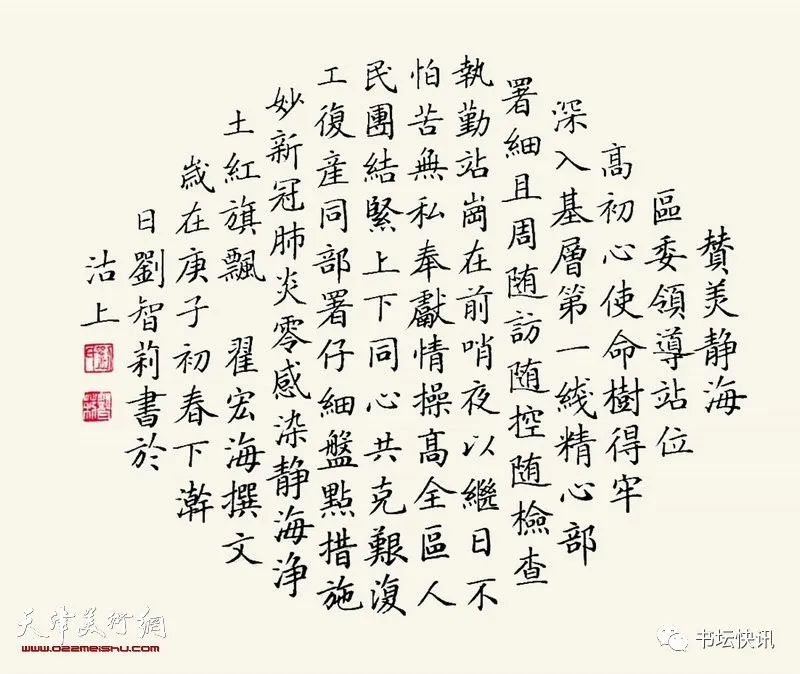 賛美静海
區委領導站位
高初心使命樹得牢
深入基層第一綫精心部
署細且周随訪随控随檢查
執勤站崗在前哨夜以繼日不
怕苦無私奉獻情操高全區人
民團結緊上下同心共克艱復
工復産同部署仔細盤點措施
妙新冠肺炎零感染静海浄
土紅旗飄 翟宏海撰文
歳在庚子初春下澣
日劉智莉書於
沽上
天津美術網
www.022meishu.com
书坛快讯